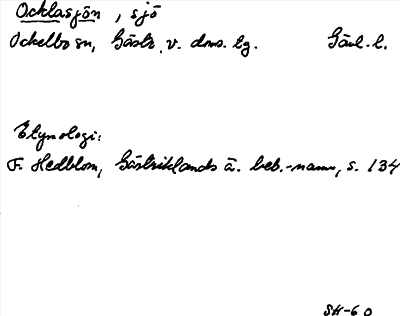 Ocklasjön, sjö
Ockelbo sn, Gästr. v. doms. tg. Gävl. l.
Etymologi:
F. Hedblom, Gästriklands ä. beb.-namn, s. 134
SH-60